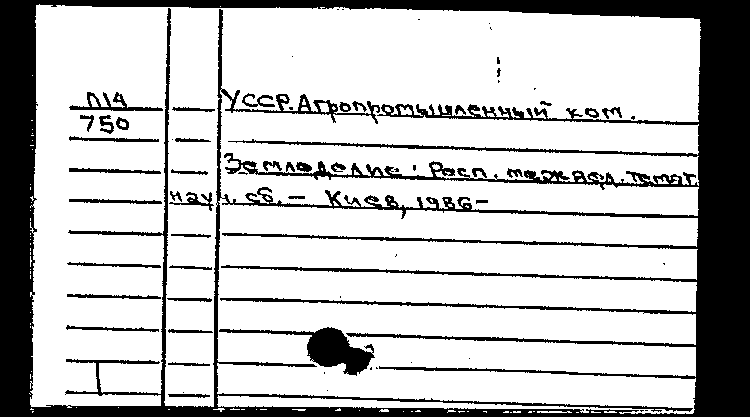 П14
УССР. Агропромышленный ком.
750
Земледелие: Респ. межвед. темат.
науч. сб. — Киев, 1986—